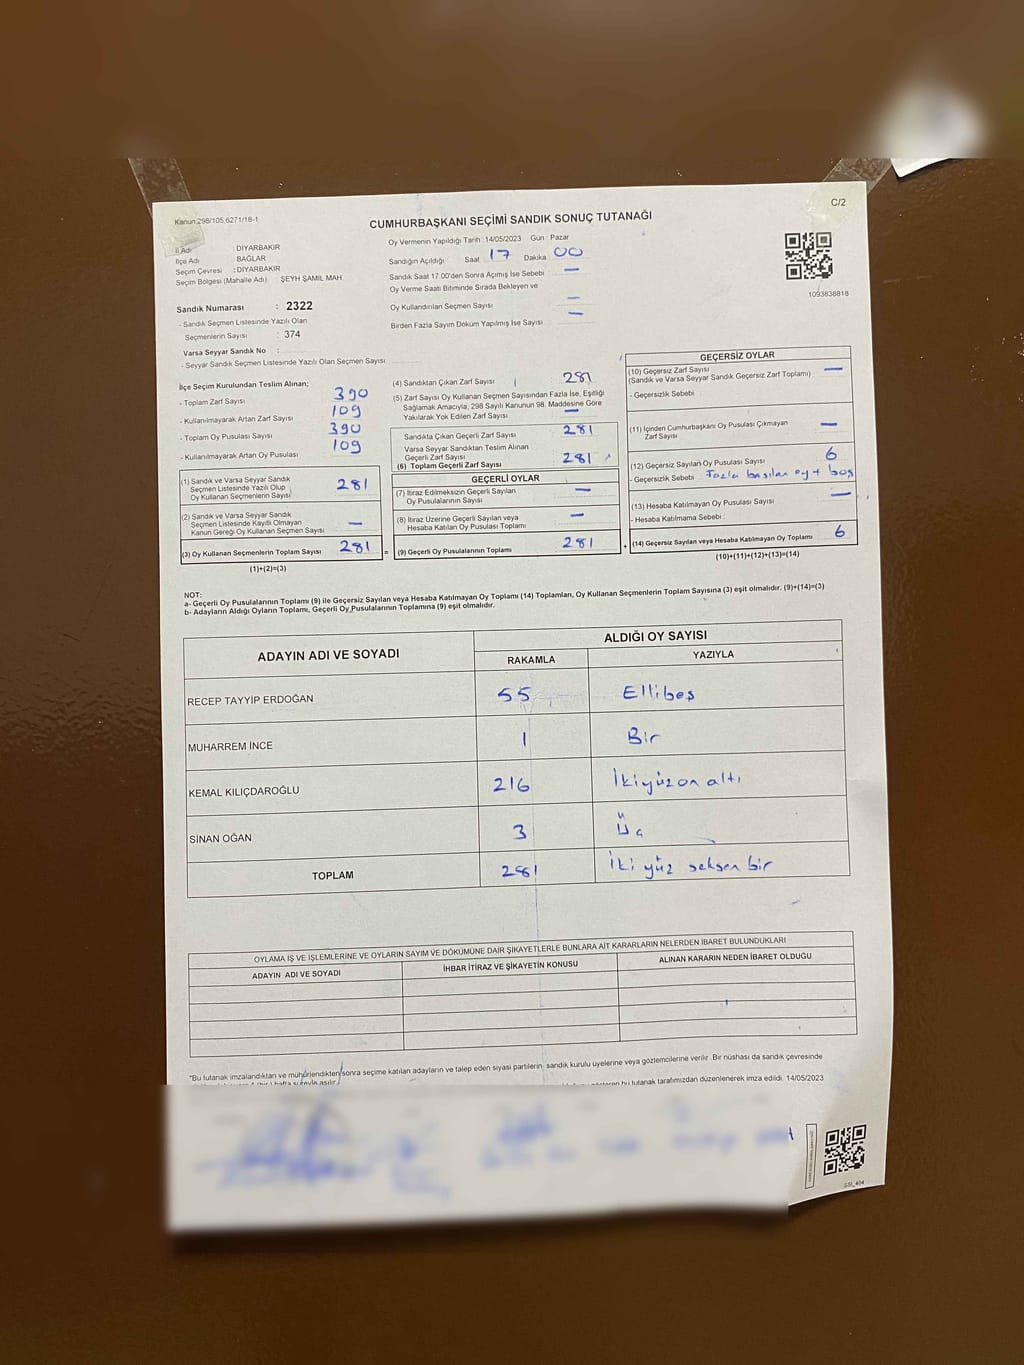 Kanun:298/105,6271/18-1
C/2
CUMHURBAŞKANI SEÇİMİ SANDIK SONUÇ TUTANAĞI
İl Adı : DİYARBAKIR
İlçe Adı : BAĞLAR
Seçim Çevresi : DİYARBAKIR
Seçim Bölgesi (Mahalle Adı) ŞEYH ŞAMİL MAH.
Oy Vermenin Yapıldığı Tarih :14/05/2023 Gün : Pazar
Sandığın Açıldığı : Saat 17 Dakika 00
Sandık Saat 17.00'den Sonra Açımış İse Sebebi —
Oy Verme Saati Bitiminde Sırada Bekleyen ve
Oy Kullandırılan Seçmen Sayısı —
Birden Fazla Sayım Döküm Yapılmış İse Sayısı —
1093838818
Sandık Numarası : 2322
- Sandık Seçmen Listesinde Yazılı Olan
Seçmenlerin Sayısı : 374
Varsa Seyyar Sandık No :
- Seyyar Sandık Seçmen Listesinde Yazılı Olan Seçmen Sayısı
İlçe Seçim Kurulundan Teslim Alınan;
- Toplam Zarf Sayısı 390
- Kullanılmayarak Artan Zarf Sayısı 109
- Toplam Oy Pusulası Sayısı 390
- Kullanılmayarak Artan Oy Pusulası 109
(1) Sandık ve Varsa Seyyar Sandık
Seçmen Listesinde Yazılı Olup
Oy Kullanan Seçmenlerin Sayısı 281
(2) Sandık ve Varsa Seyyar Sandık
Seçmen Listesinde Kayıtlı Olmayan
Kanun Gereği Oy Kullanan Seçmen Sayısı —
(3) Oy Kullanan Seçmenlerin Toplam Sayısı 281
(1)+(2)=(3)
(4) Sandıktan Çıkan Zarf Sayısı 281
(5) Zarf Sayısı Oy Kullanan Seçmen Sayısından Fazla İse, Eşitliği
Sağlamak Amacıyla, 298 Sayılı Kanunun 98. Maddesine Göre
Yakılarak Yok Edilen Zarf Sayısı —
Sandıkta Çıkan Geçerli Zarf Sayısı 281
Varsa Seyyar Sandıktan Teslim Alınan
Geçerli Zarf Sayısı
(6) Toplam Geçerli Zarf Sayısı 281
GEÇERLİ OYLAR
(7) İtiraz Edilmeksizin Geçerli Sayılan
Oy Pusulalarının Sayısı —
(8) İtiraz Üzerine Geçerli Sayılan veya
Hesaba Katılan Oy Pusulası Toplamı —
= (9) Geçerli Oy Pusulalarının Toplamı 281
GEÇERSİZ OYLAR
(10) Geçersiz Zarf Sayısı —
(Sandık ve Varsa Seyyar Sandık Geçersiz Zarf Toplamı)
- Geçersizlik Sebebi
(11) İçinden Cumhurbaşkanı Oy Pusulası Çıkmayan
Zarf Sayısı —
(12) Geçersiz Sayılan Oy Pusulası Sayısı 6
- Geçersizlik Sebebi Fazla basılan oy + boş
(13) Hesaba Katılmayan Oy Pusulası Sayısı —
- Hesaba Katılmama Sebebi :
+ (14) Geçersiz Sayılan veya Hesaba Katılmayan Oy Toplamı 6
(10)+(11)+(12)+(13)=(14)
NOT:
a- Geçerli Oy Pusulalarının Toplamı (9) ile Geçersiz Sayılan veya Hesaba Katılmayan Oy Toplamı (14) Toplamları, Oy Kullanan Seçmenlerin Toplam Sayısına (3) eşit olmalıdır. (9)+(14)=(3)
b- Adayların Aldığı Oyların Toplamı, Geçerli Oy Pusulalarının Toplamına (9) eşit olmalıdır.
ADAYIN ADI VE SOYADI
ALDIĞI OY SAYISI
RAKAMLA YAZIYLA
RECEP TAYYİP ERDOĞAN 55 Ellibeş
MUHARREM İNCE 1 Bir
KEMAL KILIÇDAROĞLU 216 İkiyüzon altı
SİNAN OĞAN 3 Üç
TOPLAM 281 İki yüz seksen bir
OYLAMA İŞ VE İŞLEMLERİNE VE OYLARIN SAYIM VE DÖKÜMÜNE DAİR ŞİKAYETLERLE BUNLARA AİT KARARLARIN NELERDEN İBARET BULUNDUKLARI
ADAYIN ADI VE SOYADI İHBAR İTİRAZ VE ŞİKAYETİN KONUSU ALINAN KARARIN NEDEN İBARET OLDUĞU
*Bu tutanak imzalandıktan ve mühürlendikten sonra seçime katılan adayların ve talep eden siyasi partilerin sandık kurulu üyelerine veya gözlemcilerine verilir. Bir nüshası da sandık çevresinde
bu tutanak tarafımızdan düzenlenerek imza edildi. 14/05/2023
SSI_404